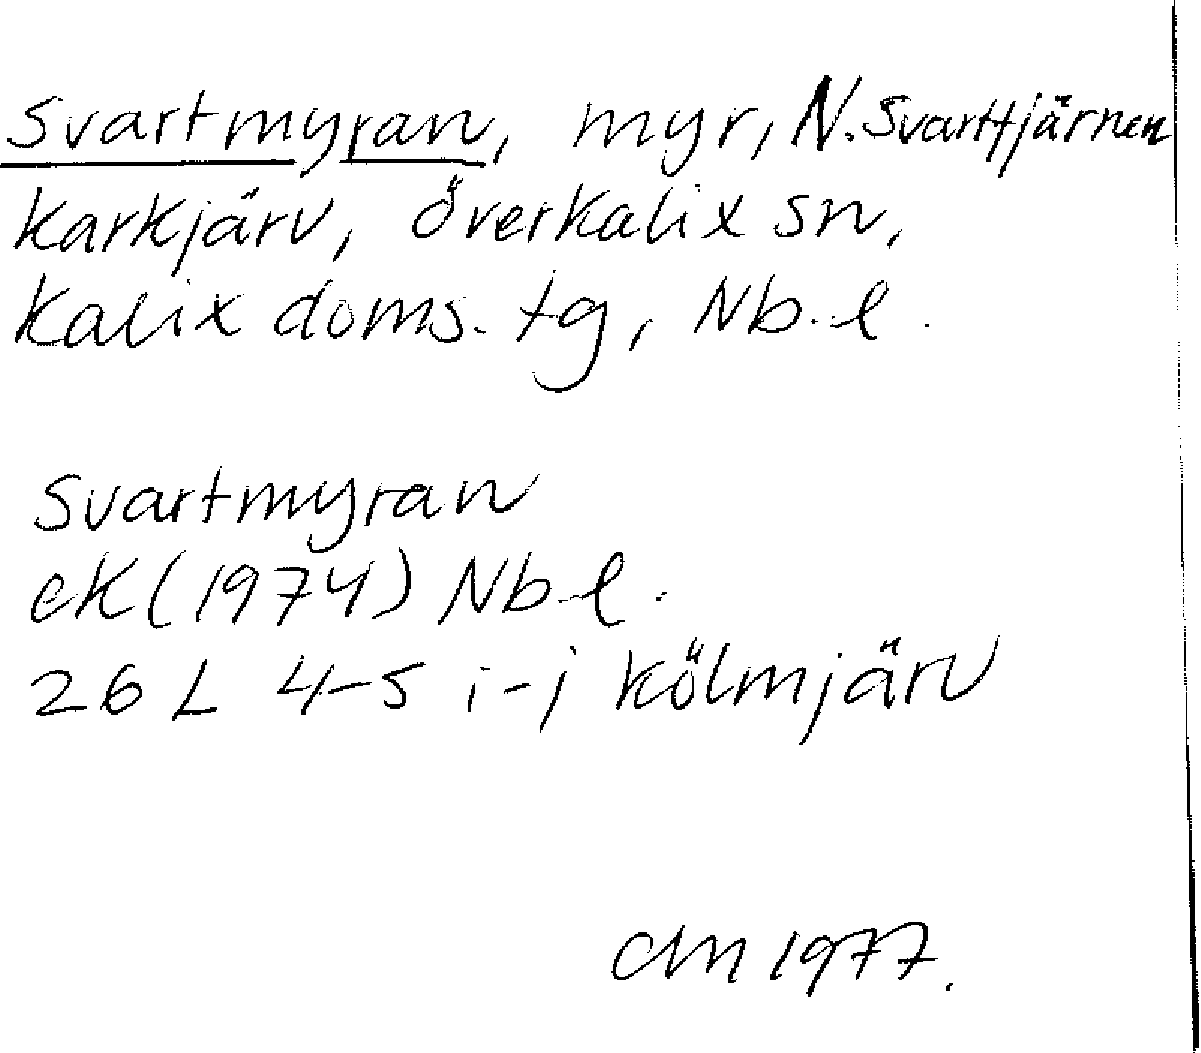 Svartmyran, myr, N. Svarttjärnen
Karkjärv, Överkalix sn,
Kalix doms. tg, Nb. l.
Svartmyran
eK (1974) Nb. l.
26 L 4-5 i-j Kölmjärv
CM 1977.